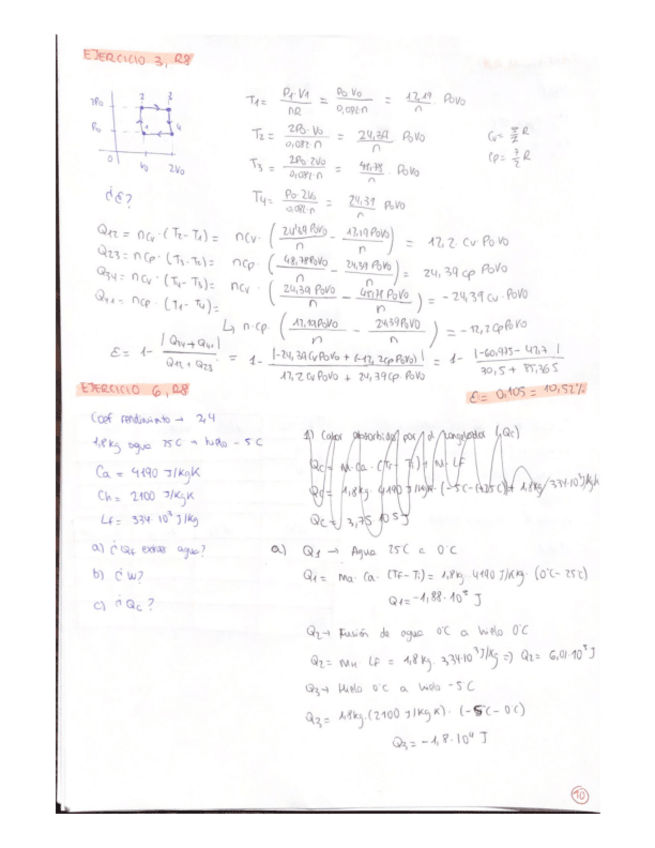 EJERCICIO 3, R8
2P₀
P₀
2 3
1 4
0 V₀ 2V₀
¿ε?
T₁ = P₁·V₁ / nR = P₀V₀ / 0,082·n = 12,19 / n P₀V₀
T₂ = 2P₀·V₀ / 0,082·n = 24,39 / n P₀V₀
T₃ = 2P₀·2V₀ / 0,082·n = 48,78 / n · P₀V₀
T₄ = P₀·2V₀ / 0,082·n = 24,39 / n P₀V₀
Cv = 5/2 R
Cp = 7/2 R
Q₁₂ = nCv·(T₂-T₁) = nCv·(24,39P₀V₀ / n - 12,19P₀V₀ / n) = 12,2·Cv·P₀V₀
Q₂₃ = nCp·(T₃-T₂) = nCp·(48,78P₀V₀ / n - 24,39P₀V₀ / n) = 24,39 Cp P₀V₀
Q₃₄ = nCv·(T₄-T₃) = nCv·(24,39P₀V₀ / n - 48,78P₀V₀ / n) = -24,39Cv·P₀V₀
Q₄₁ = nCp·(T₁-T₄) =
↳ n·Cp·(12,19P₀V₀ / n - 24,39P₀V₀ / n) = -12,2CpP₀V₀
ε = 1 - |Q₃₄+Q₄₁| / Q₁₂+Q₂₃ = 1 - |-24,39CvP₀V₀ + (-12,2CpP₀V₀)| / 12,2CvP₀V₀ + 24,39Cp·P₀V₀ = 1 - |-60,975 - 42,7| / 30,5 + 85,365
ε = 0,105 = 10,52%
EJERCICIO 6, R8
Coef rendimiento → 2,4
1,8kg agua 25C → hielo -5C
Ca = 4190 J/kgK
Ch = 2100 J/kgK
Lf = 334·10³ J/kg
a) ¿Qf extrae agua?
b) ¿W?
c) ¿Qc?
1) Calor absorbido por el congelador (Qc)
Qc = M·Ca·(Tf-Ti) + M·LF
Qc = 1,8kg·4190 J/kgK·(-5C-(+25C)) + 1,8kg·334·10³J/kgK
Qc = 3,75·10⁵ J
a) Q₁ → Agua 25C a 0°C
Q₁ = ma·Ca·(TF-Ti) = 1,8kg·4190 J/Kkg·(0°C-25C)
Q₁ = -1,88·10⁵ J
Q₂ → Fusión de agua 0°C a hielo 0°C
Q₂ = MH LF = 1,8kg·334·10³J/kg => Q₂ = 6,01·10⁵J
Q₃ → Hielo 0°C a hielo -5C
Q₃ = 1,8kg·(2100 J/kgK)·(-5C-0C)
Q₃ = -1,8·10⁴ J
10